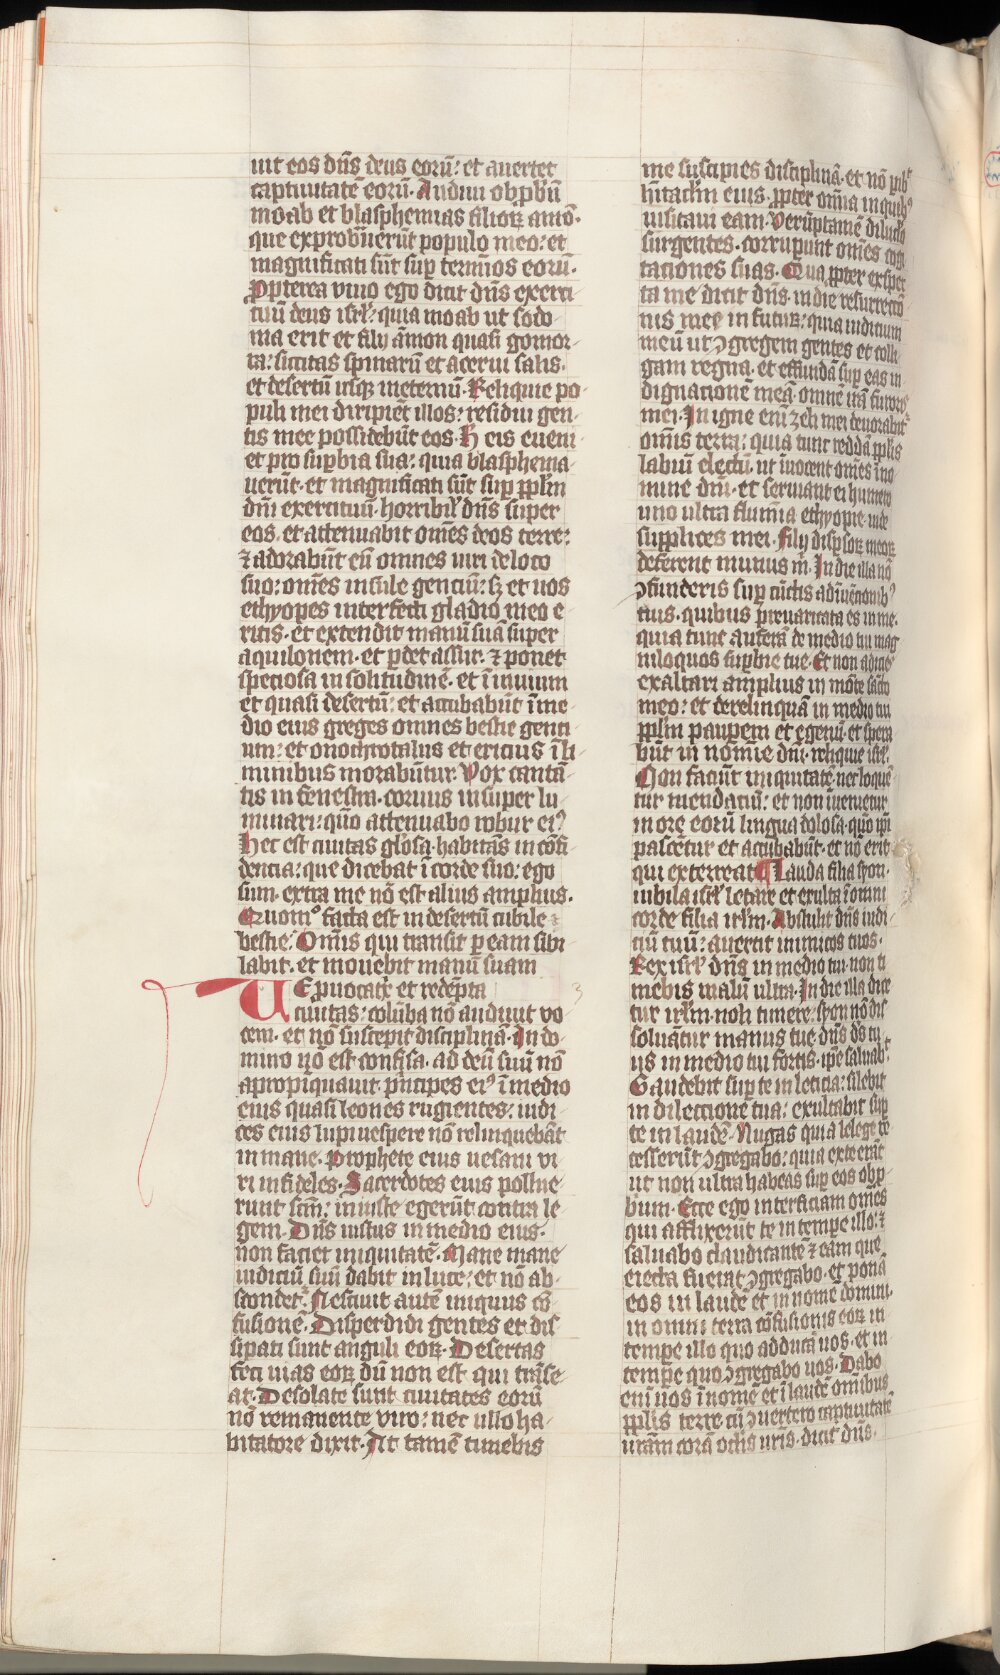 uit eos dn̄s deus eorū: et auertet
captiuitatē eorū. Audiui obpbriū
moab et blasphemias filioꝝ amō-
que exprobrauerūt populo meo: et
magnificati sūt suꝑ terminos eorū.
Propterea viuo ego dicit dn̄s exerci-
tuū deus isrl̄: quia moab ut sodo-
ma erit et filij āmon quasi gomor-
ra: siccitas spinarū et acerui salis.
et desertū usqꝫ ineternū. Reliquie po-
puli mei diripiēt illos: residui gen-
tis mee possidebūt eos. H eis eueni-
et pro suꝑbia sua: quia blasphema-
uerūt. et magnificati sūt suꝑ ppl̄m
dn̄i exercituū. horribil' dn̄s super
eos. et attenuabit om̄es deos terre:
⁊ adorabūt eū omnes viri de loco
suo: om̄es insule genciū: sꝫ et uos
ethyopes interfecti gladio meo e-
ritis. et extendit manū suā super
aquilonem. et ꝑdet assur. ⁊ ponet
speciosa in solitudinē. et ī inuium
et quasi desertū: et accubabūt ī me-
dio eius greges omnes bestie genti-
um: et onochrotalus et ericius ī li-
minibus morabūtur. Vox cantā-
tis in fenestra. coruus in super lu-
minari: qm̄ attenuabo robur ei⁹
Hec est ciuitas gl'osa. habitās in cōfi-
dentia: que dicebat ī corde suo: ego
sum. extra me nō est alius amplius.
Quomo facta est in desertū cubile
bestie: Omis qui transit ꝑ eam sibi-
labit. et mouebit manū suam
Ue ꝓuocatrix et redēpta
ciuitas: colūba nō audiuit vo-
cem. et nō suscepit disciplinā. In do-
mino nō est confisa. ad deū suū nō
apropiquauit. prīcipes ei⁹ ī medio
eius quasi leones rugientes: iudi-
ces eius lupi uespere nō relinquebāt
in mane. Prophete eius uesani vi-
ri infideles. Sacerdotes eius pollue-
runt scm̄: iniuste egerūt contra le-
gem. Dn̄s iustus in medio eius.
non faciet iniquitatē. Mane mane
iudiciū suū dabit in luce: et nō ab-
scondet'. Nesciuit autē iniquus cō-
fusionē. Disperdidi gentes et dis-
sipati sunt anguli eoꝝ. Desertas
feci uias eoꝝ dū non est qui trāse-
at. Desolate sunt ciuitates eorū
nō remanente viro: nec ullo ha-
bitatore dixit. At tamē timebis
me suscipies disciplinā. et nō ꝑib'
h̄itacl'm eius. ꝓpter om̄ia in quib⁹
uisitaui eam. Verūptamē diluclo
surgentes. corrupunt om̄es cogi
taciones suas. Quaꝓpter exspec
ta me dicit dn̄s. in die resurrectō
nis mee in futuꝝ: quia iudicium
meū ut ꝯgregem gentes et colli
gam regna. et effundā suꝑ eas in
dignationē meā. omnē irā furoris
mei. In igne eni zeli mei deuorabit'
om̄is terra: quia tunc reddā pplis
labiū electū. ut īuocent om̄es ī no
mine dn̄i. et seruiant ei humero
uno ultra flumīa ethyopie. inde
supplices mei. filij dispsoꝝ meoꝝ
deferent munus m̄. In die illa nō
ꝯfunderis suꝑ cūctis adiuēcionib⁹
tuis. quibus p̄uaricata es in me.
quia tunc auferā de medio tui mag
niloquos suꝑbie tue. Et non adicies
exaltari amplius in mōte sācto
meo: et derelinquā in medio tui
ppl̄m pauꝑem et egenū. et spera
būt in nomīe dn̄i. reliquie isrl'.
Non faciūt iniquitatē. nec loquē
tur mendaciū: et non inuenietur
in ore eorū lingua dolosa. qm̄ ip̄i
pascētur et accubabūt. et nō erit
qui exterreat. Lauda filia syon.
iubila isrl' letare et exulta ī omni
corde filia irl'm. Abstulit dn̄s iudi
ciū tuū: auertit inimicos tuos.
Rex isrl' dn̄s in medio tui. non ti
mebis malū ultra. In die illa dice
tur irl'm. noli timere: syon nō dis
soluātur manus tue. dn̄s ds̄ tu
us in medio tui fortis. ip̄e saluab'.
Gaudebit suꝑ te in leticia: silebit
in dilectionē tua: exultabit suꝑ
te in laudē. Nugas qui a lege re
cesserūt ꝯgregabo: quia ex te erāt
ut non ultra habeas suꝑ eos obꝓ
bium. Ecce ego interficiam om̄es
qui afflixerūt te in temꝑe illo: ⁊
saluabo claudicantē ⁊ eam que
eiecta fuerat ꝯgregabo. et ponā
eos in laudē et in nomē domini.
in omni terra cōfusionis eoꝝ in
tempe illo quo adducā uos. et in
tempe quo ꝯgregabo uos. Dabo
enī uos ī nomē et ī laudē omibus
pplis terre cū ꝯuertero captiuitatē
urām corā oclis uris. dicit dn̄s.